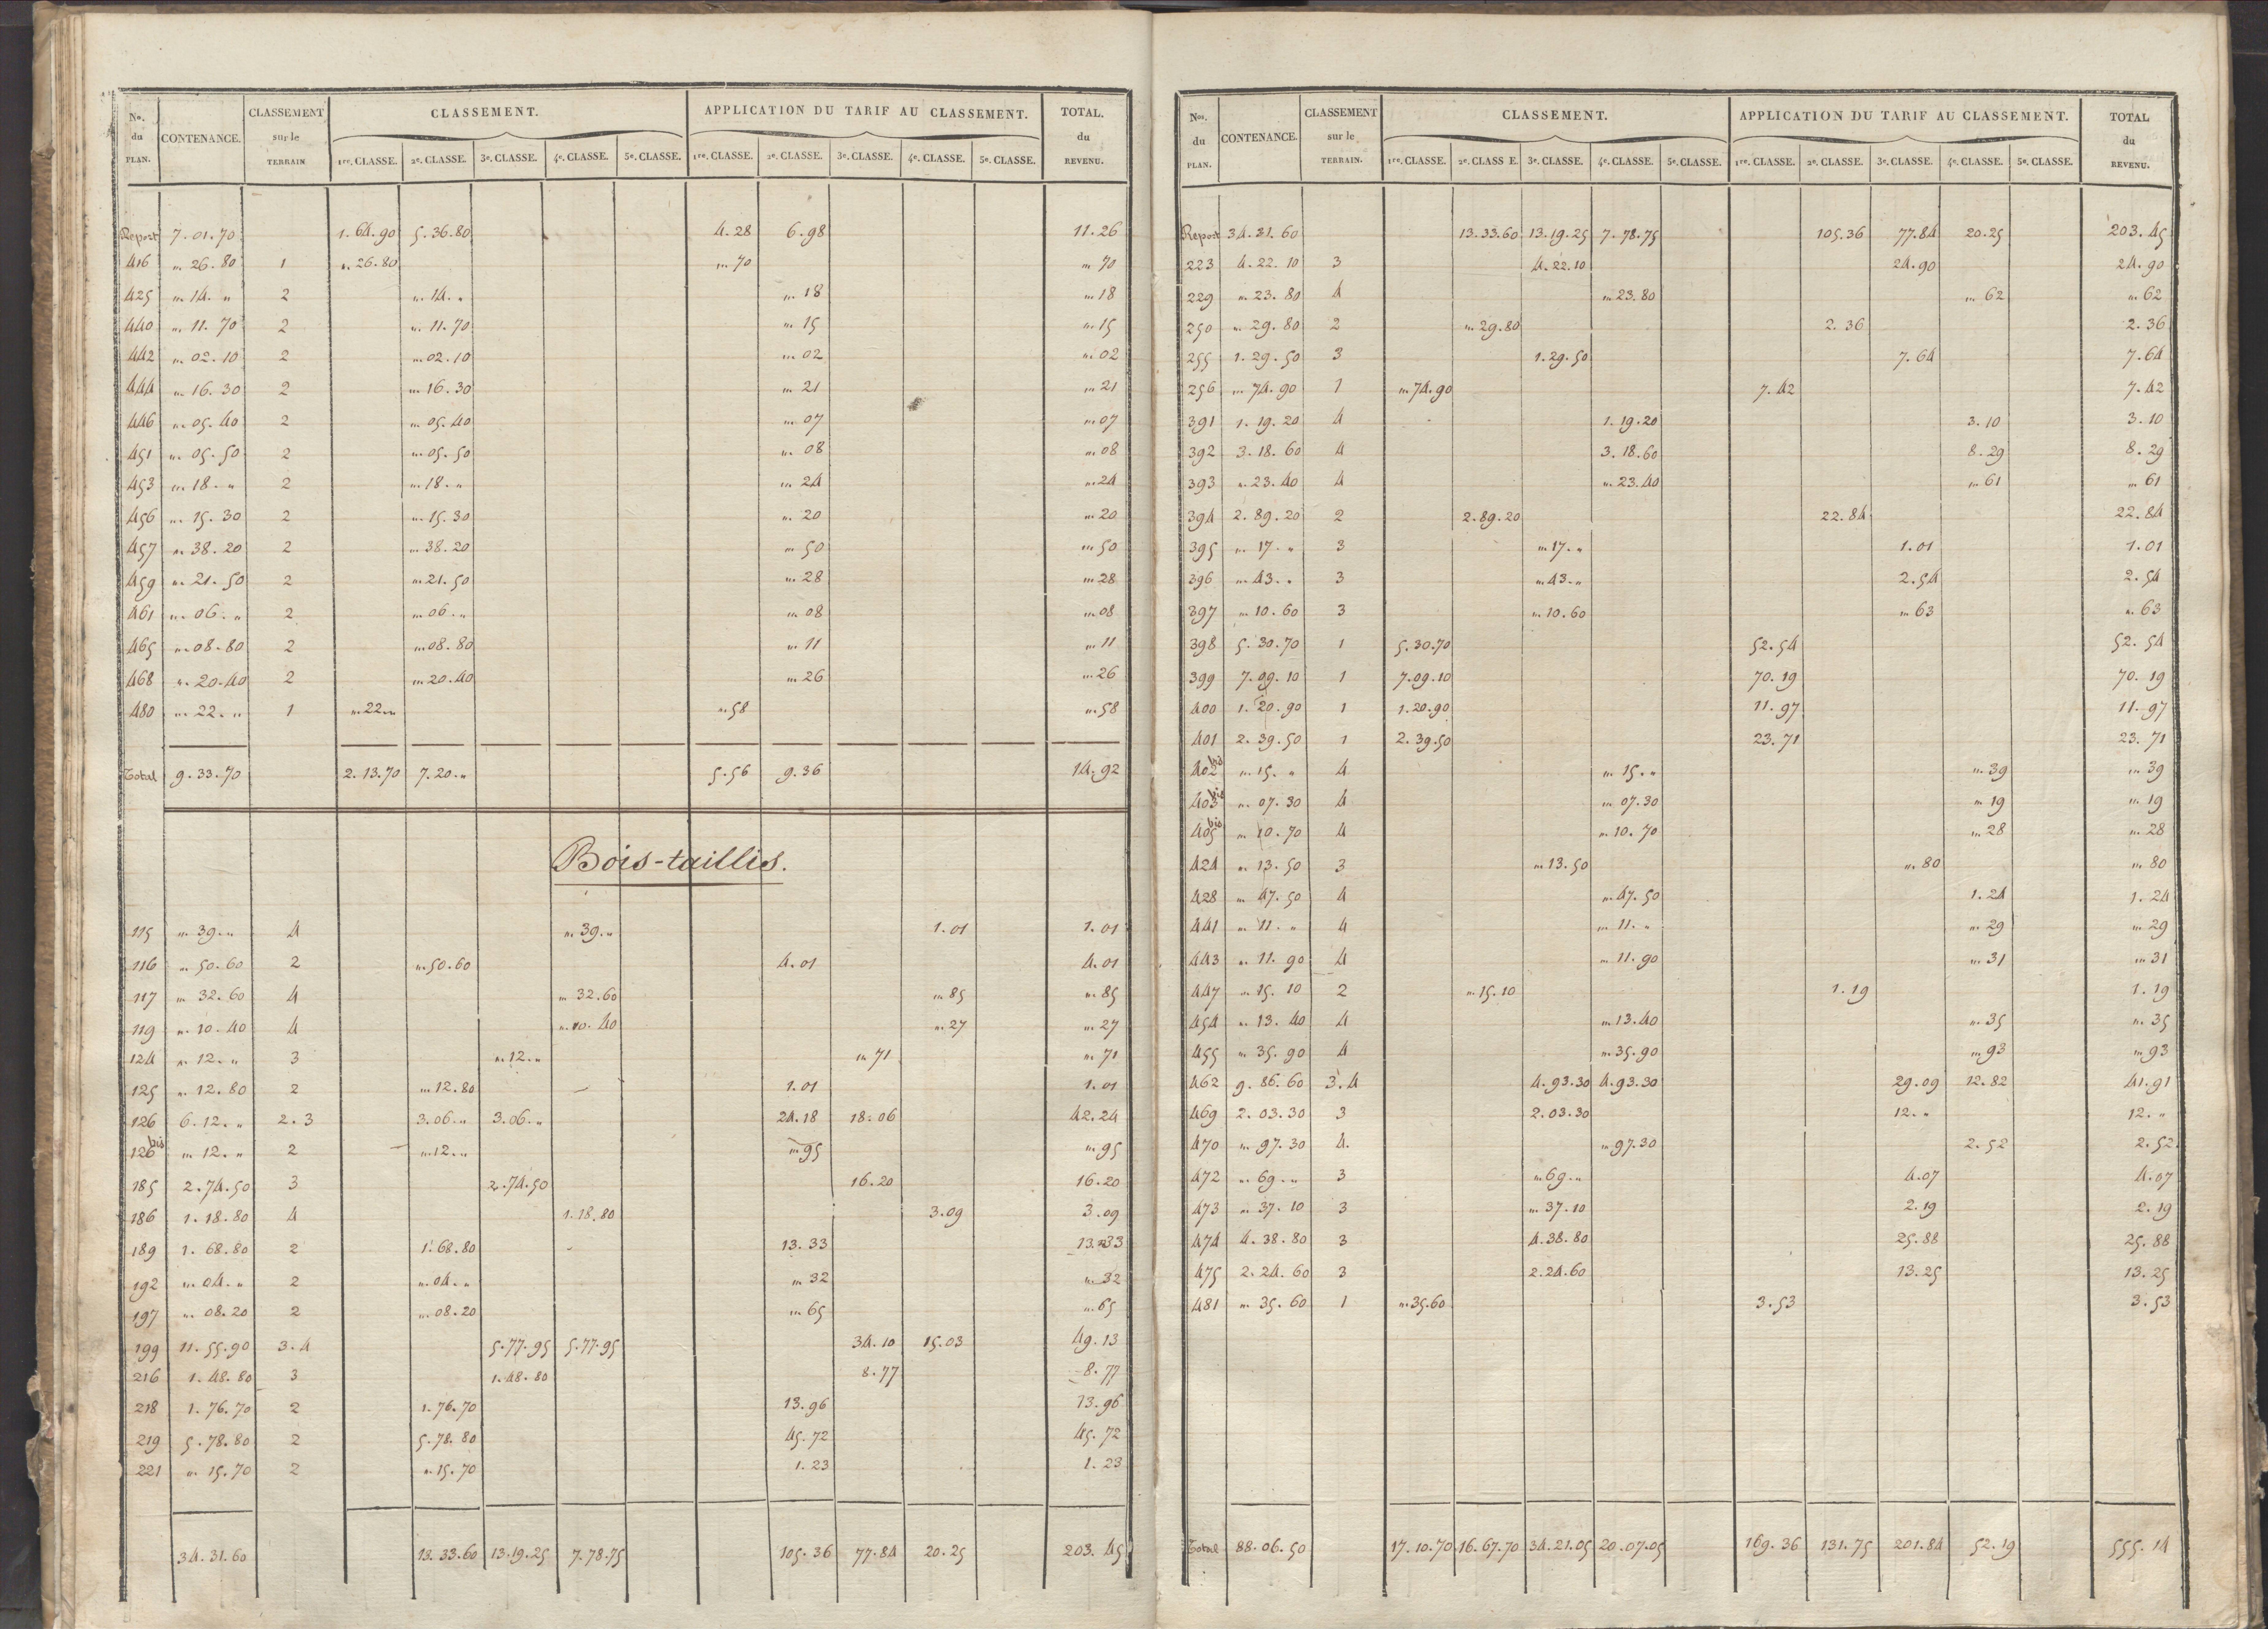 No. du PLAN. CONTENANCE. CLASSEMENT sur le TERRAIN CLASSEMENT. APPLICATION DU TARIF AU CLASSEMENT. TOTAL. du REVENU.
1re. CLASSE. 2e. CLASSE. 3e. CLASSE. 4e. CLASSE. 5e. CLASSE. 1re. CLASSE. 2e. CLASSE. 3e. CLASSE. 4e. CLASSE. 5e. CLASSE.
Report 7.01.70 1.64.90 5.36.80 4.28 6.98 11.26
416 " 26.80 1 " 26.80 " 70 " 70
425 " 14. " 2 " 14. " " 18 " 18
440 " 11.70 2 " 11.70 " 15 " 15
442 " 02.10 2 " 02.10 " 02 " 02
444 " 16.30 2 " 16.30 " 21 " 21
446 " 05.40 2 " 05.40 " 07 " 07
451 " 05.50 2 " 05.50 " 08 " 08
453 " 18. " 2 " 18. " " 24 " 24
456 " 15.30 2 " 15.30 " 20 " 20
457 " 38.20 2 " 38.20 " 50 " 50
459 " 21.50 2 " 21.50 " 28 " 28
461 " 06. " 2 " 06. " " 08 " 08
465 " 08.80 2 " 08.80 " 11 " 11
468 " 20.40 2 " 20.40 " 26 " 26
480 " 22. " 1 " 22. " " 58 " 58
Total 9.33.70 2.13.70 7.20. " 5.56 9.36 14.92
Bois-taillis.
115 " 39. " 4 " 39. " 1.01 1.01
116 " 50.60 2 " 50.60 4.01 4.01
117 " 32.60 4 " 32.60 " 85 " 85
119 " 10.40 4 " 10.40 " 27 " 27
124 " 12. " 3 " 12. " " 71 " 71
125 " 12.80 2 " 12.80 1.01 1.01
126 6.12. " 2.3 3.06. " 3.06. " 24.18 18.06 42.24
126 bis " 12. " 2 " 12. " " 95 " 95
185 2.74.50 3 2.74.50 16.20 16.20
186 1.18.80 4 1.18.80 3.09 3.09
189 1.68.80 2 1.68.80 13.33 13.33
192 " 04. " 2 " 04. " " 32 " 32
197 " 08.20 2 " 08.20 " 65 " 65
199 11.55.90 3.4 5.77.95 5.77.95 34.10 15.03 49.13
216 1.48.80 3 1.48.80 8.77 8.77
218 1.76.70 2 1.76.70 13.96 13.96
219 5.78.80 2 5.78.80 45.72 45.72
221 " 15.70 2 " 15.70 1.23 1.23
34.31.60 13.33.60 13.19.25 7.78.75 105.36 77.84 20.25 203.45
Nos. du PLAN. CONTENANCE. CLASSEMENT sur le TERRAIN. CLASSEMENT. APPLICATION DU TARIF AU CLASSEMENT. TOTAL du REVENU.
1re. CLASSE. 2e. CLASS E. 3e. CLASSE. 4e. CLASSE. 5e. CLASSE. 1re. CLASSE. 2e. CLASSE. 3e. CLASSE. 4e. CLASSE. 5e. CLASSE.
Report 34.31.60 13.33.60 13.19.25 7.78.75 105.36 77.84 20.25 203.45
223 4.22.10 3 4.22.10 24.90 24.90
229 " 23.80 4 " 23.80 " 62 " 62
250 " 29.80 2 " 29.80 2.36 2.36
255 1.29.50 3 1.29.50 7.64 7.64
256 " 74.90 1 " 74.90 7.42 7.42
391 1.19.20 4 1.19.20 3.10 3.10
392 3.18.60 4 3.18.60 8.29 8.29
393 " 23.40 4 " 23.40 " 61 " 61
394 2.89.20 2 2.89.20 22.84 22.84
395 " 17. " 3 " 17. " 1.01 1.01
396 " 43. " 3 " 43. " 2.54 2.54
397 " 10.60 3 " 10.60 " 63 " 63
398 5.30.70 1 5.30.70 52.54 52.54
399 7.09.10 1 7.09.10 70.19 70.19
400 1.20.90 1 1.20.90 11.97 11.97
401 2.39.50 1 2.39.50 23.71 23.71
402 bis " 15. " 4 " 15. " " 39 " 39
403 bis " 07.30 4 " 07.30 " 19 " 19
405 bis " 10.70 4 " 10.70 " 28 " 28
424 " 13.50 3 " 13.50 " 80 " 80
428 " 47.50 4 " 47.50 1.24 1.24
441 " 11. " 4 " 11. " " 29 " 29
443 " 11.90 4 " 11.90 " 31 " 31
447 " 15.10 2 " 15.10 1.19 1.19
454 " 13.40 4 " 13.40 " 35 " 35
455 " 35.90 4 " 35.90 " 93 " 93
462 9.86.60 3.4 4.93.30 4.93.30 29.09 12.82 41.91
469 2.03.30 3 2.03.30 12. " 12. "
470 " 97.30 4. " 97.30 2.52 2.52
472 " 69. " 3 " 69. " 4.07 4.07
473 " 37.10 3 " 37.10 2.19 2.19
474 4.38.80 3 4.38.80 25.88 25.88
475 2.24.60 3 2.24.60 13.25 13.25
481 " 35.60 1 " 35.60 3.53 3.53
Total 88.06.50 17.10.70 16.67.70 34.21.05 20.07.05 169.36 131.75 201.84 52.19 555.14